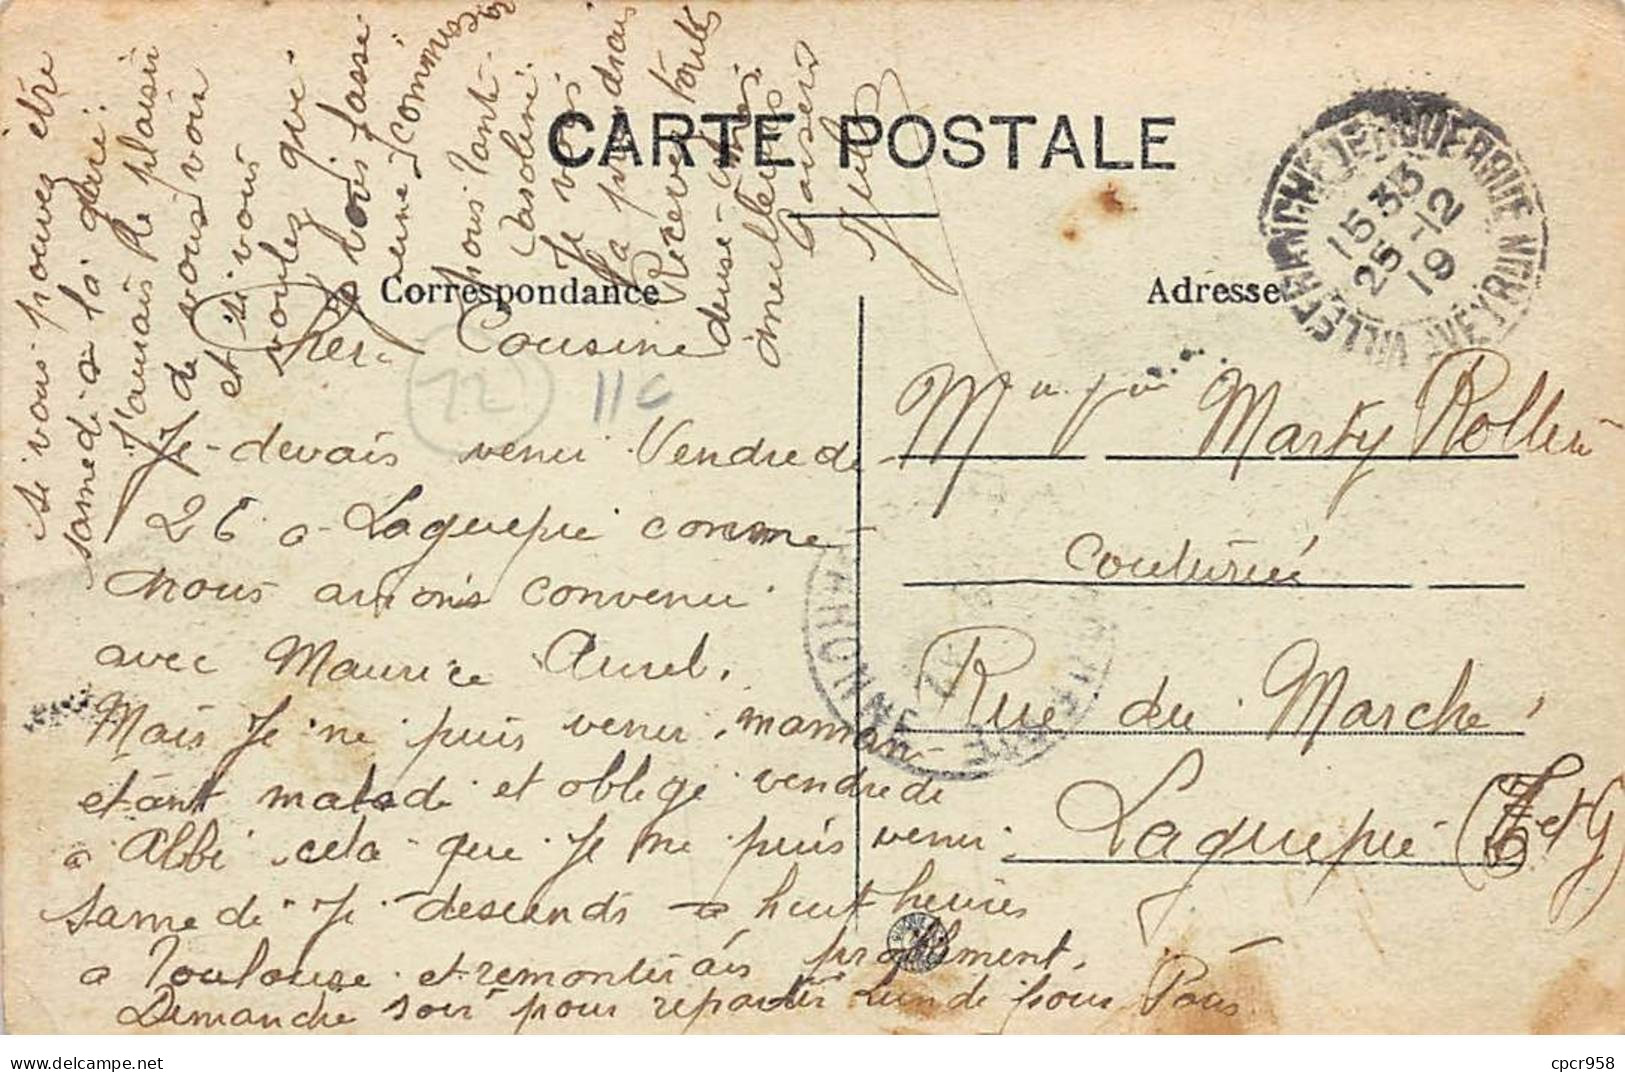 CARTE POSTALE
Correspondance
Adresse
VILLEFRANCHE DE ROUERGUE AVEYRON
15 33
25 -12
19
Cher Cousine
12
11c
Je devais venir Vendrede
26 a Laguepie comme
nous avions convenu
avec Maurice Aurel.
Mais Je ne puis venir, maman
etant malade et oblege vendrede
a Albi cela que Je ne puis venir
samedi Je descends a huit heures
a Toulouse et remonterais problement
Dimanche soir pour repartir Lundi pour Paris
Si vous pouvez être
samedi a la gare
J'aurais le plaisir
de vous voir
et si vous
voulez que
Je vous fasse
une commission
vous
Je vais
la prendrais
Recevez toute
meilleurs
baisers
Jules
Marty Rollen
Couturiére
Rue du Marche
Laguepie (T et G)
cpcr958